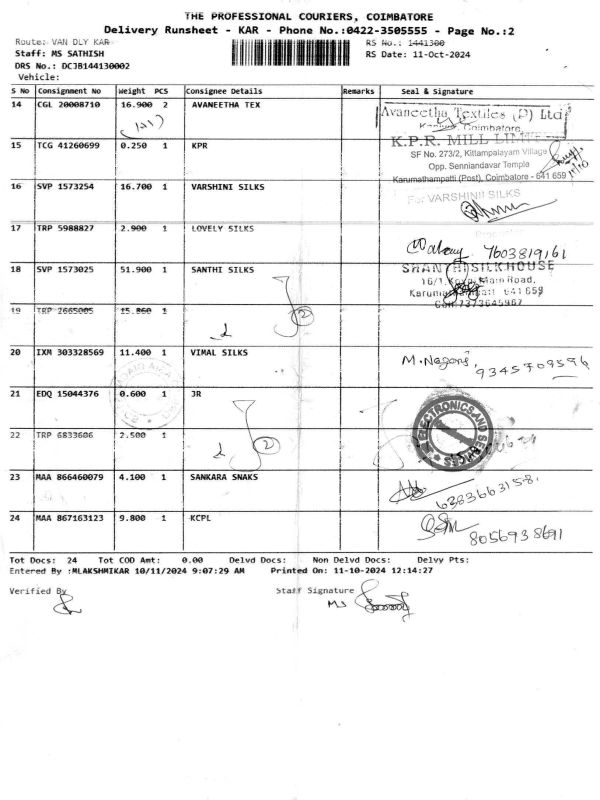 THE PROFESSIONAL COURIERS, COIMBATORE
Delivery Runsheet - KAR - Phone No.:0422-3505555 - Page No.:2
Route: VAN DLY KAR
RS No.: 1441300
Staff: MS SATHISH
RS Date: 11-Oct-2024
DRS No.: DCJB144130002
Vehicle:
S No Consignment No Weight PCS Consignee Details Remarks Seal & Signature
14 CGL 20008710 16.900 2 AVANEETHA TEX
Avaneetha Textiles (P) Ltd
Coimbatore
15 TCG 41260699 0.250 1 KPR
K.P.R. MILL LIMITED
SF No. 273/2, Kittampalayam Village
Opp. Senniandavar Temple
Karumathampatti (Post), Coimbatore - 641 659
16 SVP 1573254 16.700 1 VARSHINI SILKS
For VARSHINII SILKS
17 TRP 5988827 2.900 1 LOVELY SILKS
7603819161
18 SVP 1573025 51.900 1 SANTHI SILKS
SHANTHI SILK HOUSE
Main Road,
641 659
7373645967
19 TRP 2665005 15.860 1
2
20 IXM 303328569 11.400 1 VIMAL SILKS
9345709596
21 EDQ 15044376 0.600 1 JR
ELECTRONICS AND
22 TRP 6833606 2.500 1
2
23 MAA 866460079 4.100 1 SANKARA SNAKS
6383663158
24 MAA 867163123 9.800 1 KCPL
8056938691
Tot Docs: 24 Tot COD Amt: 0.00 Delvd Docs: Non Delvd Docs: Delvy Pts:
Entered By :MLAKSHMIKAR 10/11/2024 9:07:29 AM Printed On: 11-10-2024 12:14:27
Verified By
Staff Signature
MS